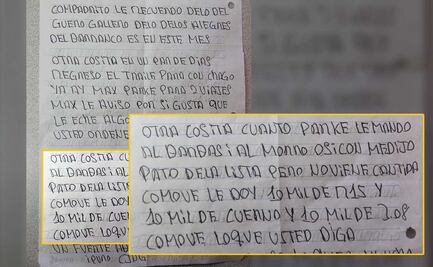 COMPADRITO LE RECUERDO DELO DEL
GUERO GALLERO DELO DELOS ALEGRES
DEL BARRANCO ES EU ESTE MES
OTRA COSITA EU UU PAR DE DIAS
REGRESO EL TRAILE PARA COU CHAGO
YA AY MAX PARKE PARA 2 VIAJES
MAX LE AVISO POR SI GUSTA QUE
LE ECHE ALGO
USTED ORDENE
OTRA COSITA CU
AL BARBAS I AL
PATO DELA LIST
COMOVE LE DOY
10 MIL DE CUE
COMOVE LOQU
UN FUERTE AB
OTRA COSITA CUANTO PARKE LE MANDO
AL BARBAS I AL MORRO OSICON MEDIJO
PATO DELA LISTA PERO NOVIENE CANTIDA
COMOVE LE DOY 10 MIL DE R15 Y
10 MIL DE CUERNO Y 10 MIL DE 308
COMOVE LOQUE USTED DIGA